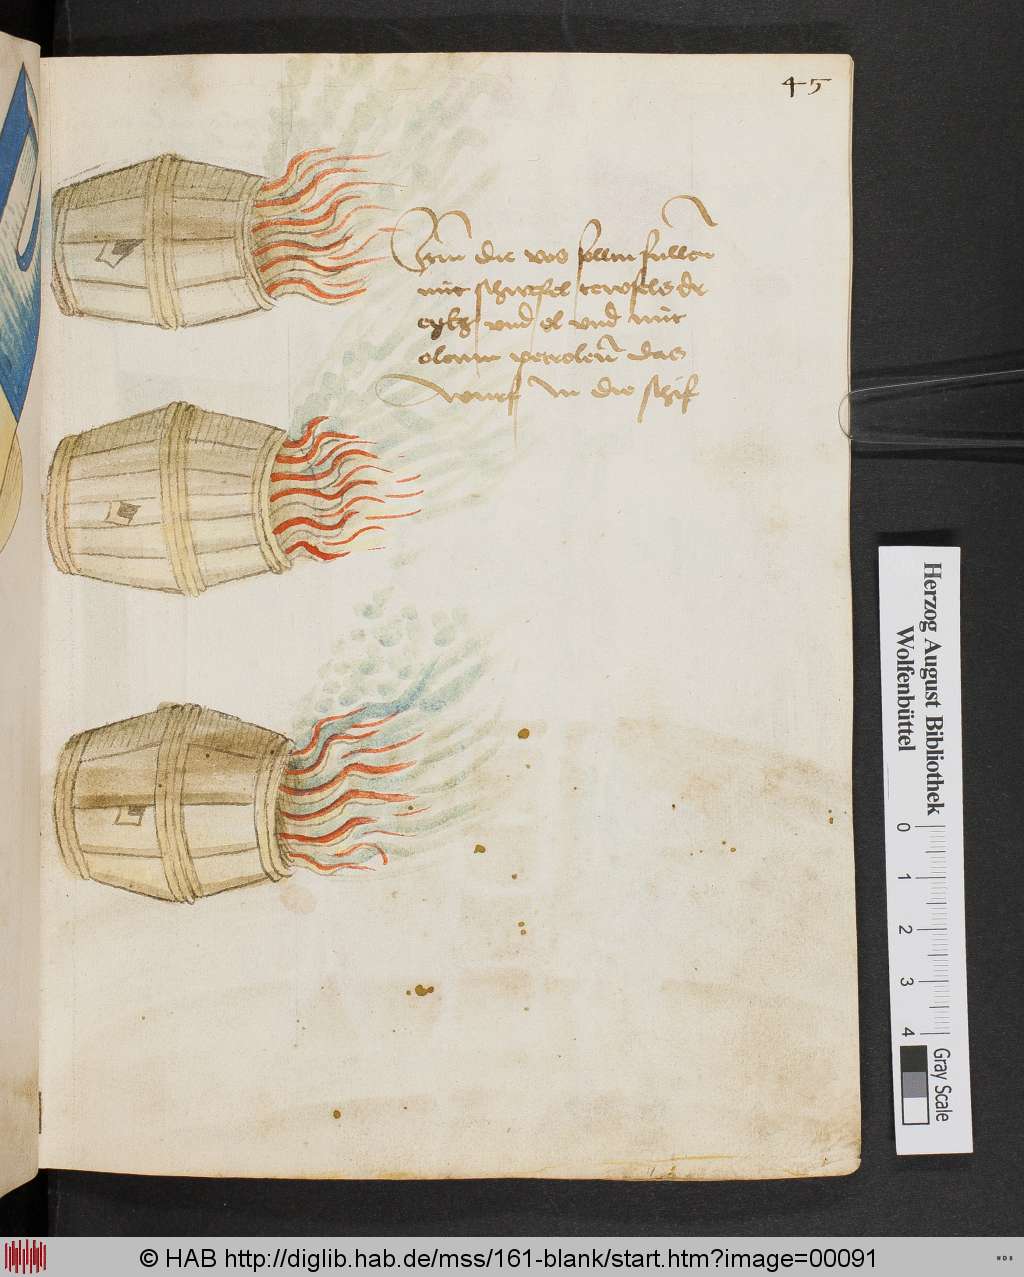 45
Item die vas sollen fullen
mit schwefel tewfels dr
eykz und el und mit
oloum petroleum das
wurf in die schif
Herzog August Bibliothek
Wolfenbüttel
0 1 2 3 4
Gray Scale
© HAB http://diglib.hab.de/mss/161-blank/start.htm?image=00091